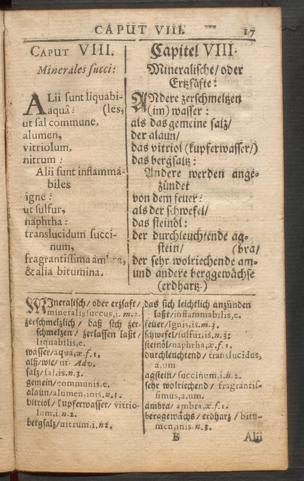 CAPUT VIII.
17
CAPUT VIII.
Minerales succi:
ALii sunt liquabi-
aquâ: (les,
ut sal commune,
alumen,
vitriolum,
nitrum:
Alii sunt inflammâ-
biles
igne:
ut sulfur,
naphtha:
translucidum succi-
num,
fragrantissima ambra,
& alia bitumina.
Capitel VIII.
Mineralische/oder
Ertzsäfte:
ANdere zerschmeltzen
(im) wasser:
als das gemeine saltz/
der alaun/
das vitriol (kupferwasser/)
das bergsaltz:
Andere werden ange-
zündet
von dem feuer:
als der schwefel/
das steinöl:
der durchleuchtende ag-
stein/ (bra/
der sehr wolriechende am-
und andere berggewächse
(erdhartz.)
Mineralisch/ oder ertzhaft/
minerális succus, i. m. 2.
zerschmeltzlich/ daß sich zer-
schmeltzen/ zerlassen laßt
liquabilis, e.
wasser/aqua, æ. f. 1.
als/wie/ ut Adv.
saltz/sal, is. n. 3.
gemein/communis, e.
alaun/alumen, inis. n. 3.
vitriol/ kupferwasser/ vitrio-
lum, i. n. 2.
bergsaltz/nitrum, i. n. 2.
das sich leichtlich anzünden
laßt/inflammabilis, e.
feuer/ignis, is. m. 3.
schwefel/sulfur, is. n. 3.
steinöl/naphtha, æ. f. 1.
durchleuchtend/ translucidus,
a, um.
agstein/succinum, i. n. 2.
sehr wolriechend/ fragrantis-
simus, a, um.
ambra/ambra, æ. f. 1.
berggewächs/ erdhartz/ bitu-
men, inis. n. 3.
B
Alii